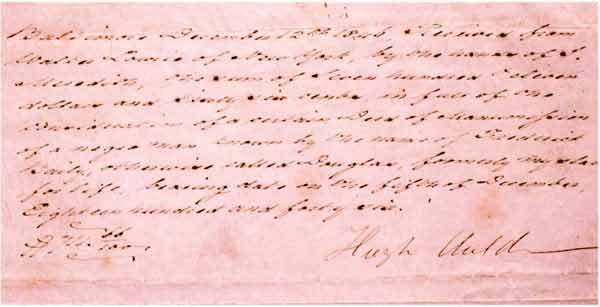 Baltimore December 12th 1846 Received from
Walter Lowrie of New York, by the hands of J.
Meredith, the sum of Seven hundred Eleven
dollars and Ninety six cents in full of the
Consideration of a certain Deed of Manumission
of a negro man known by the name of Frederick
Baily, otherwise called Douglas, formerly my slave
for life, bearing date on the fifth of December,
Eighteen hundred and forty six.
66
$711 /100
Hugh Auld